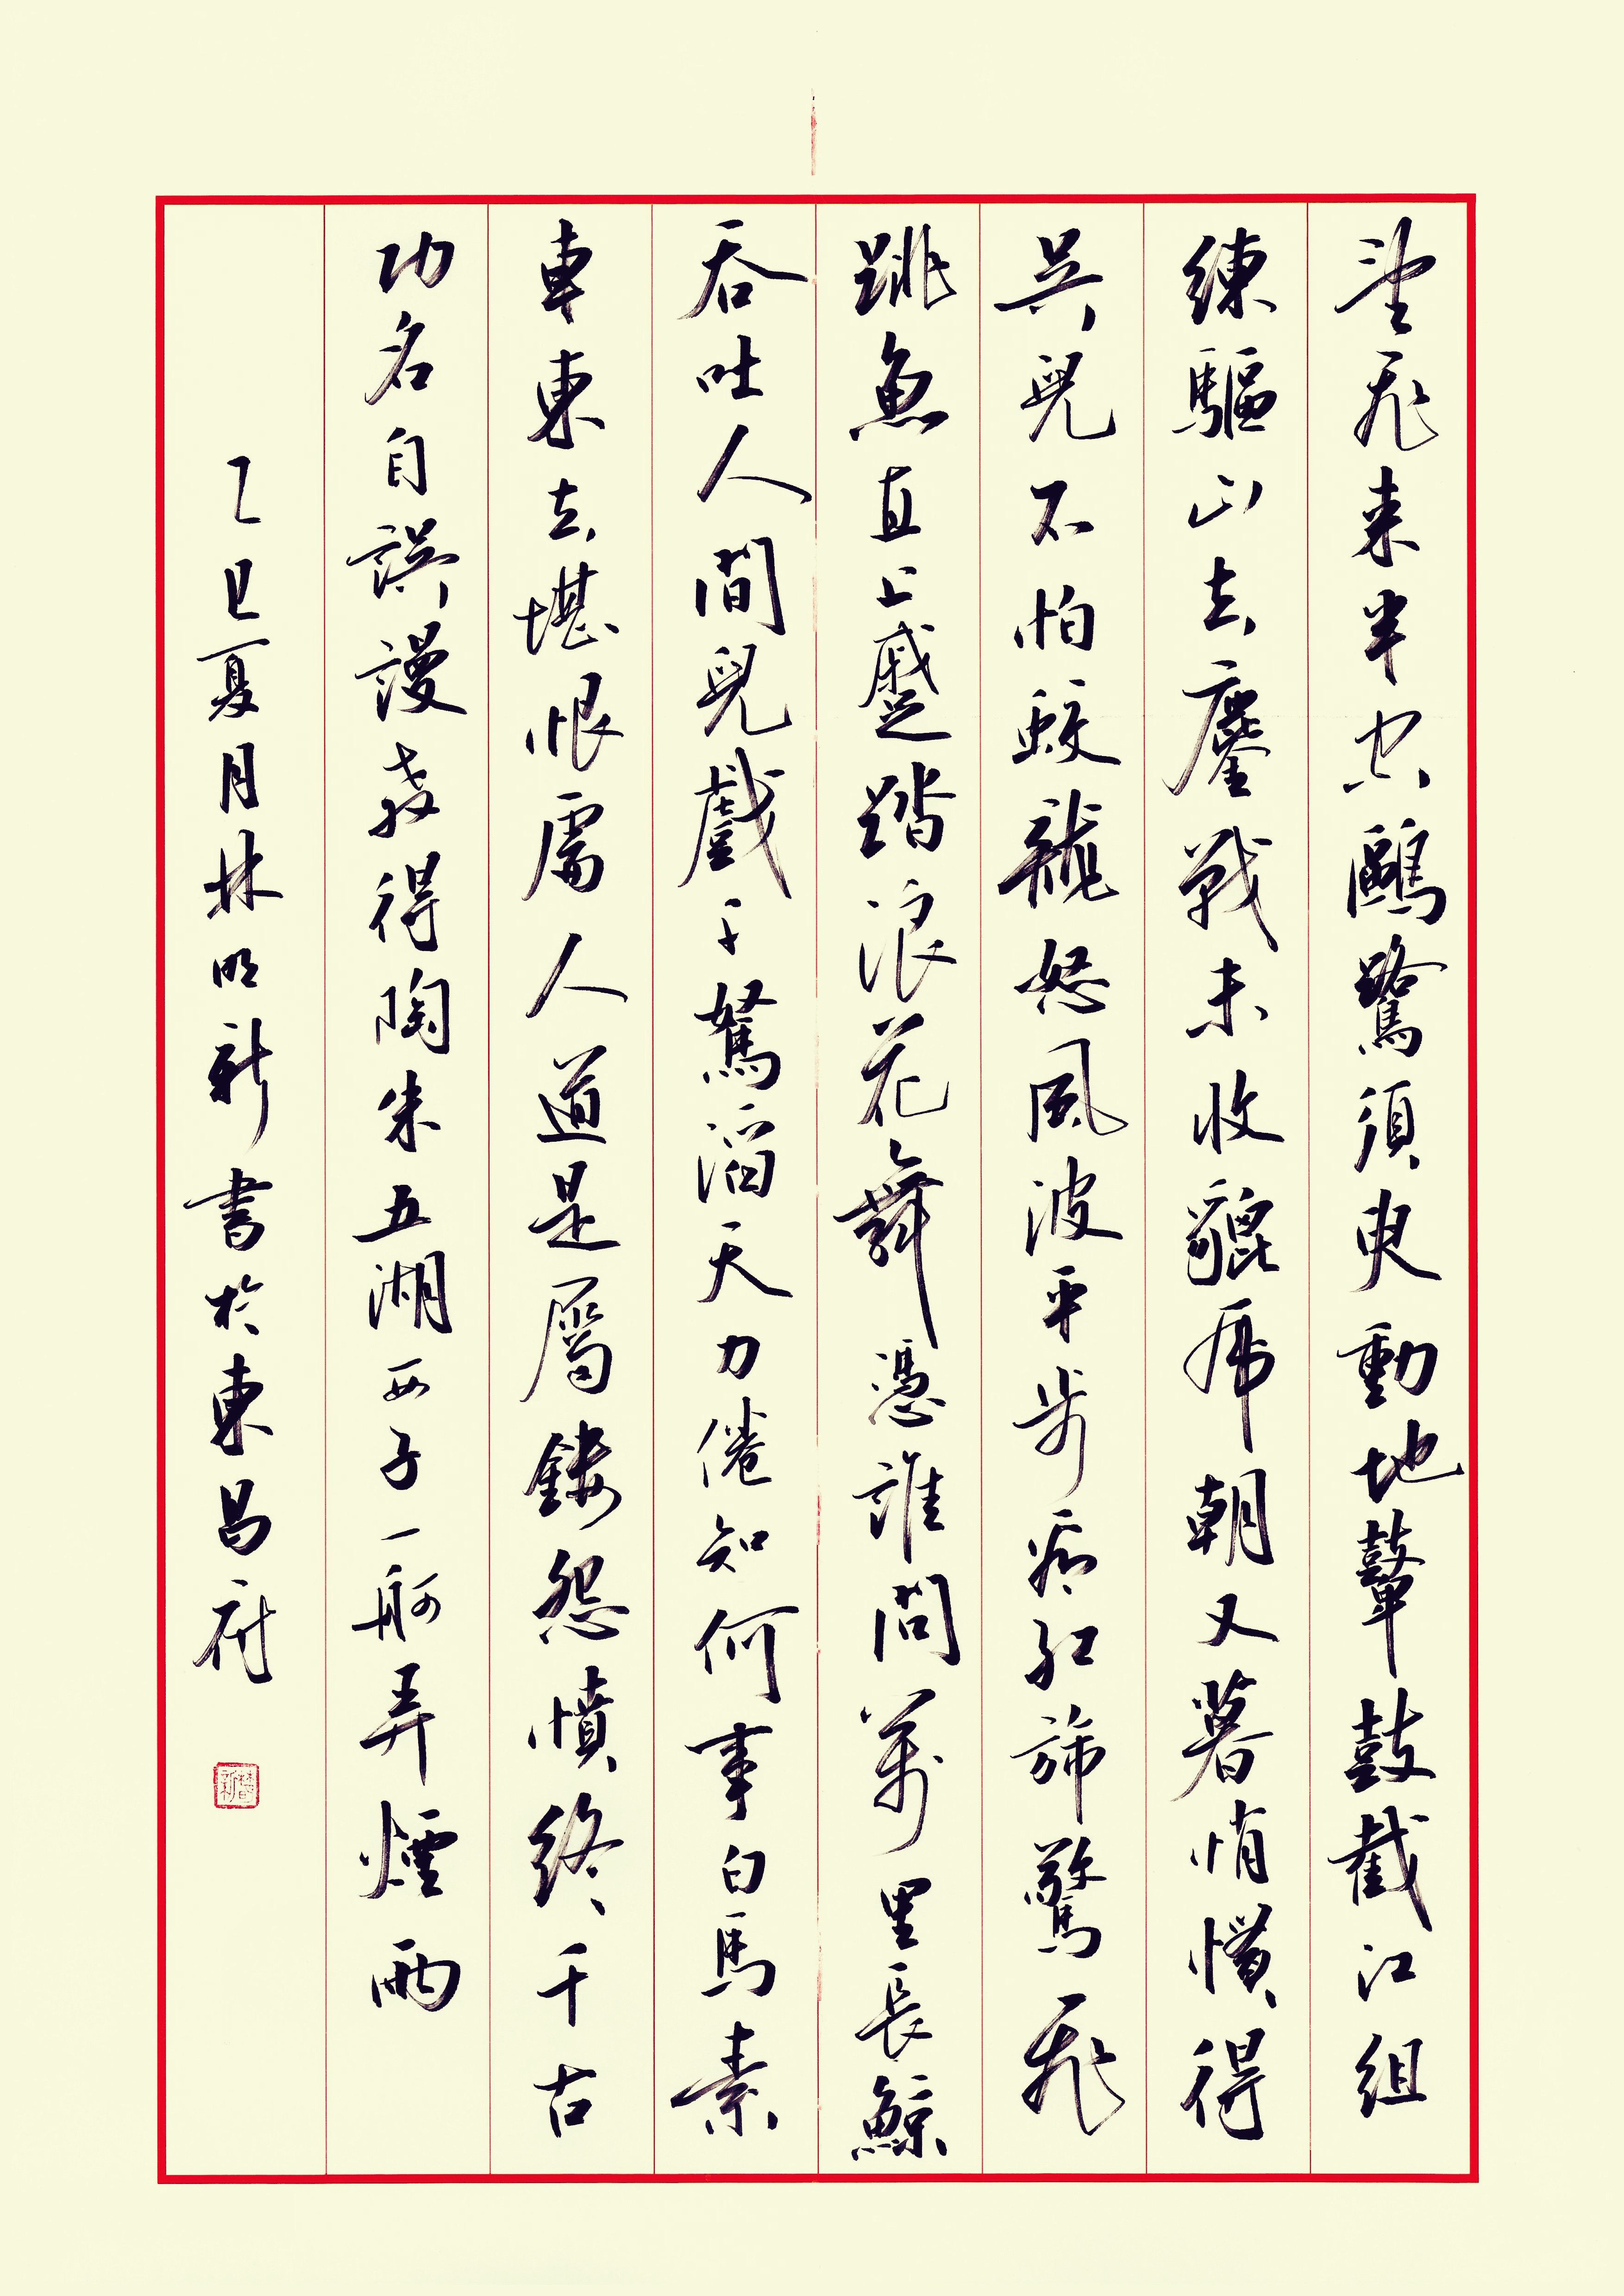 望飛來半空鷗鷺須臾動地鼙鼓截江組
練驅山去鏖戰未收貔虎朝又暮悄慣得
吳兒不怕蛟龍怒風波平步看紅旆驚飛
跳魚直上蹙踏浪花舞憑誰問萬里長鯨
吞吐人間兒戲千駑滔天力倦知何事白馬素
車東去堪恨處人道是屬鏤怨憤終千古
功名自誤謾教得陶朱五湖西子一舸弄煙雨
乙巳夏月林明新書於東昌府